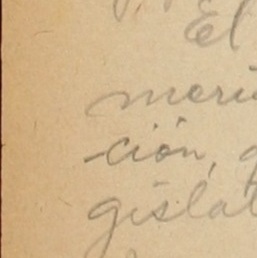 El
meri
-ción,
gisla